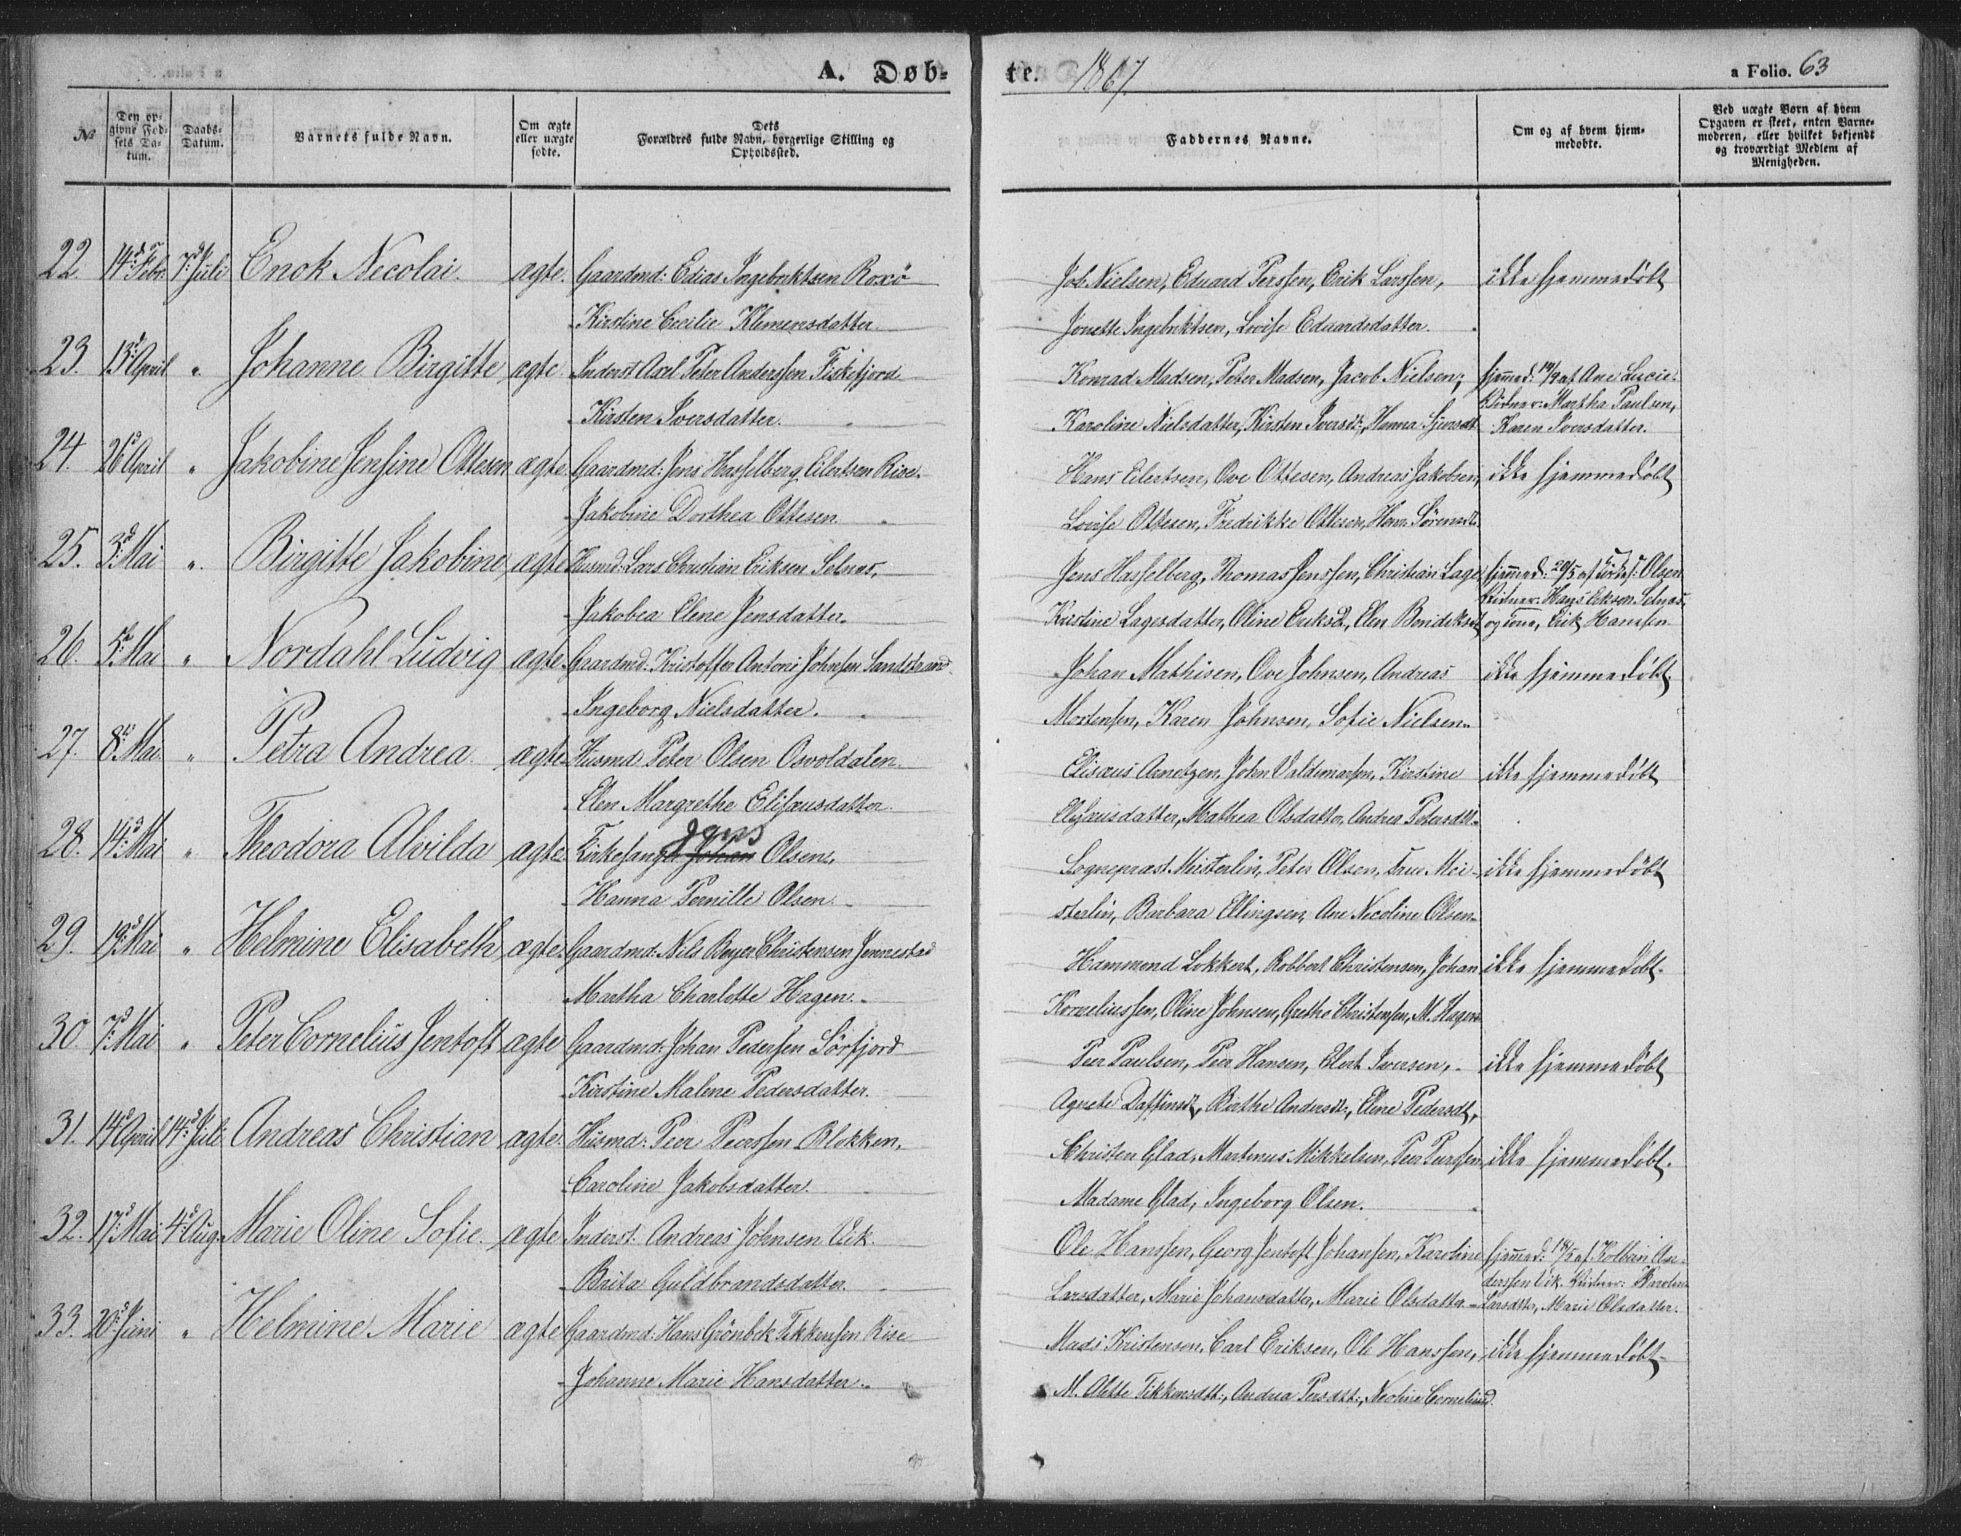 A. Døb-
te. 1867.
a Folio. 63
№
Den op-
givne Fød-
sels Da-
tum.
Daabs-
Datum.
Barnets fulde Navn.
Om ægte
eller uægte
fødte.
Dets
Forældres fulde Navn, borgerlige Stilling og
Opholdssted.
Faddernes Navne.
Om og af hvem hjem-
medøbte.
Ved uægte Børn af hvem
Opgaven er skeet, enten Barne-
moderen, eller hvilket bekjendt
og troværdigt Medlem af
Menigheden.
22. 14d Febr. 7d Juli Enok Nicolai. ægte. Gaardmd: Edias Ingebriktsen Roxö
Kirstine Cecilie Klemensdatter.
Job Nielsen, Eduard Perssen, Erik Larssen, ikke hjemmedøbt
Jonette Ingebriktsen, Lovise Eduardsdatter.
23. 13d April " Johanne Birgitte ægte. Inderst Axel Peter Anderssen Fiskefjord
Kirsten Iversdatter.
Konrad Madsen, Peter Madsen, Jacob Nielsen, hjemmed: af Ane Lucie.
Karoline Nielsdatter, Kirsten Iversdt:, Hanna
Vidner: Martha Paulsen,
Karen Iversdatter.
24. 26d April " Jakobine Jensine Ottesen ægte. Gaardmd: Jens Hasselberg Eilertsen Rise.
Jakobine Dorthea Ottesen
Hans Eilertsen, Ove Ottesen, Andreas Jakobsen, ikke hjemmedøbt
Lovise Ottesen, Fredrikke Ottesen, Sörensdt.
25. 3d Mai " Birgitte Jakobine ægte Husmd: Lars Christian Eriksen Selnæs,
Jakobea Elene Jensdatter.
Jens Hasselberg, Thomas Jenssen, Christian Lage hjemmed: 20/5 af Olsen
Kirstine Lagesdatter, Oline Eriksdt, Elen Bendiksdt
Vidner: Hans Selnæs,
og Erik Hansen
26. 5te Mai " Nordahl Ludvig ægte Gaardmd: Kristoffer Antoni Johnsen Sandstrand
Ingeborg Nielsdatter.
Johan Mathisen, Ove Johnsen, Andreas ikke hjemmedøbt.
Mortensen, Karen Johnsen, Sofie Nielsen.
27. 8de Mai. " Petra Andrea. ægte Husmd Peter Olsen Osvoldalen
Elen Margrethe Elisæusdatter.
Elisæus Arnetzen, John Valdemarsen, Kirstine ikke hjemmedøbt
Elisæusdatter, Mathea Olsdatter, Andrea Petersdtt.
28. 14d Mai " Theodora Alvilda ægte Kirkesanger Johan Jens Olsen,
Hanna Pernille Olsen.
Sogneprast Meisterlin, Peter Olsen, Frue Mei- ikke hjemmedøbt
sterlin, Barbara Ellingsen, Ane Nicoline Olsen
29. 19d Mai " Helmine Elisabeth ægte. Gaardmd: Nils Beyer Christensen Jennestad
Martha Charlotte Hagen.
Hammond Lokkert, Robbert Christensen, Johan ikke hjemmedøbt.
Korneliussen, Oline Johnsen, Grethe Christensen, M. Hagen
30. 7d Mai " Peter Cornelius Jentoft ægte Gaardmd: Johan Pedersen Sörfjord
Kirstine Malene Pedersdatter.
Peer Paulsen, Peer Hansen, Elert Iversen, ikke hjemmedøbt
Agnete Daffinsdt, Birthe Andersdt, Elene Pedersdt,
31. 14d April 14d Juli Andreas Christian ægte. Husmd: Peer Peerssen Blokken,
Caroline Jakobsdatter.
Christen Glad, Martinus Mikkelsen, Peer Peerssen, ikke hjemmedøbt.
Madame Glad, Ingeborg Olsen.
32. 17d Mai 4d Aug. Marie Oline Sofie. ægte Inderst: Andreas Johnsen Vik.
Brita Guldbrandsdatter.
Ole Hanssen, Georg Jentoft Johansen, Karoline hjemmed: 18/5 af Kolbein An-
Larsdatter, Marie Johansdatter, Marie Olsdatter
derssen Vik. Vidner: Karoline
Larsdtr, Marie Olsdatter.
33. 20d Juni " Helmine Marie ægte Gaardmd: Hans Grönbek Tikkensen Rise
Johanne Marie Hansdatter.
Mads Kristensen, Carl Eriksen, Ole Hanssen, ikke hjemmedøbt
M. Alette Tikkensdtt:, Andrea Persdtt:, Nicoline Corneliusd.